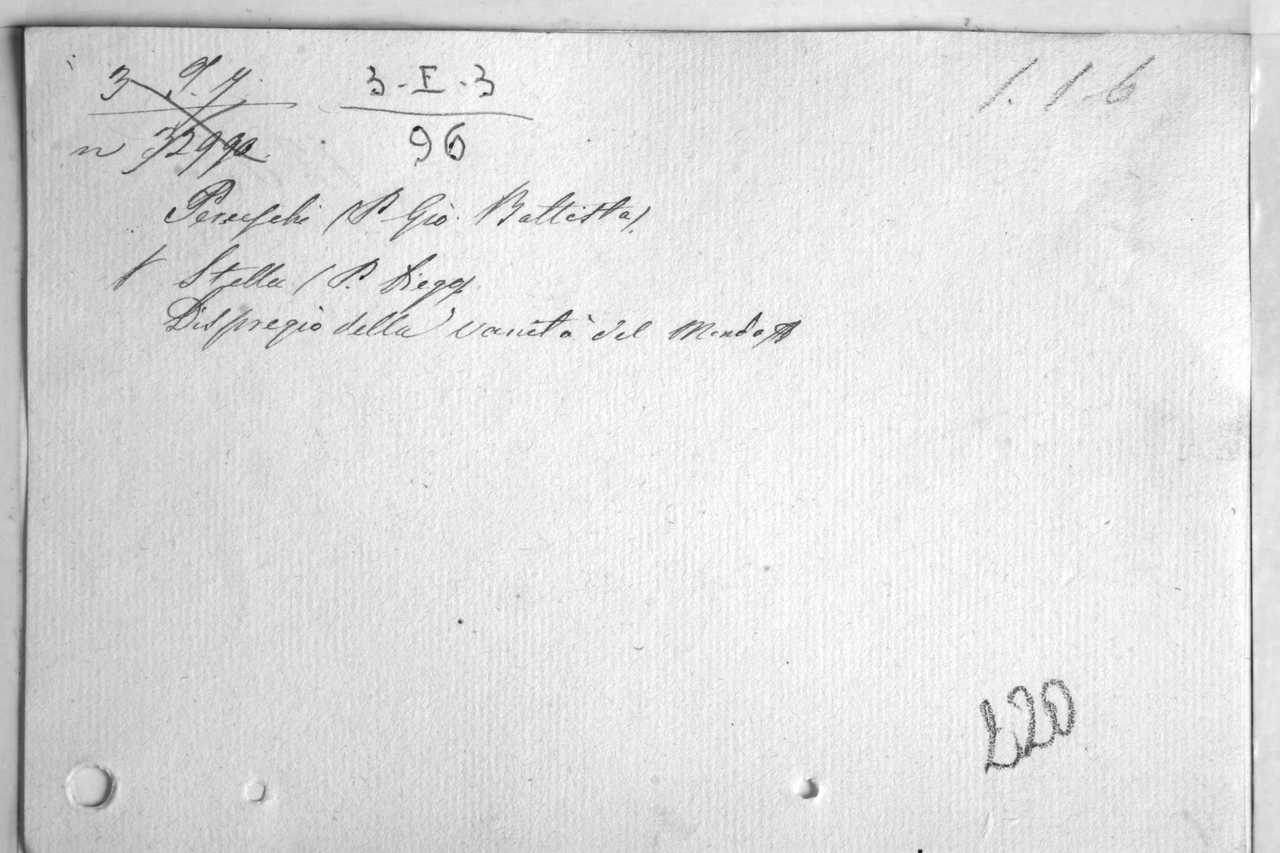 3 9.9.
n 32990.
3-I-3
96
1.1.6
Peruschi (P. Gio. Battista)
Stella (P. Diego)
Dispregio della vanità del Mondo
220